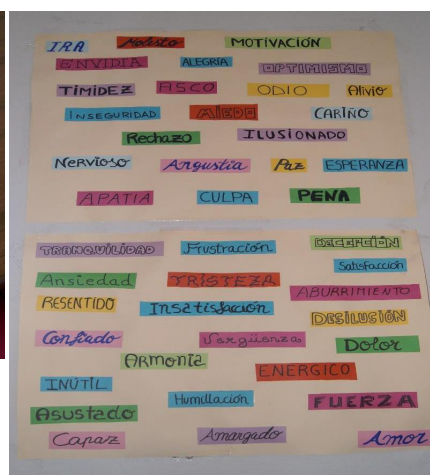 IRA Molesto MOTIVACIÓN
ENVIDIA ALEGRÍA OPTIMISMO
TIMIDEZ ASCO ODIO Alivio
INSEGURIDAD MIEDO CARIÑO
Rechazo ILUSIONADO
NERVIOSO Angustia Paz ESPERANZA
APATIA CULPA PENA
TRANQUILIDAD Frustración DECEPCIÓN
Satisfacción
Ansiedad TRISTEZA
ABURRIMIENTO
RESENTIDO Insatisfacción
DESILUCIÓN
Confiado Vergüenza Dolor
ARMONIA ENERGICO
INÚTIL Humillación FUERZA
Asustado
Capaz Amargado Amor